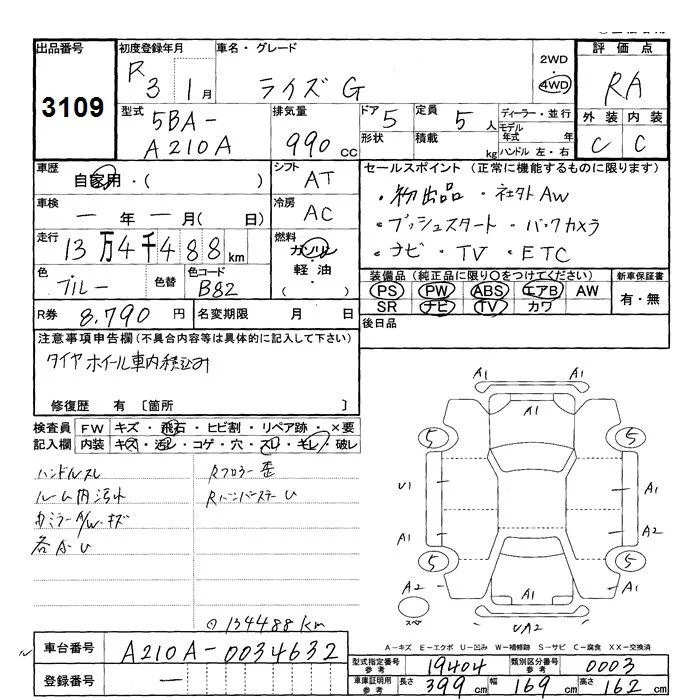 出品番号 初度登録年月 車名・グレード 2WD 評価点
3109 R3 1月 ライズG 4WD RA
型式 排気量 ドア 定員 ディーラー・並行 外装 内装
5BA-A210A 990cc 5 5人 モデル年式 年 C C
形状 積載 kg ハンドル左・右
車歴 自家用・( ) シフト AT セールスポイント(正常に機能するものに限ります)
車検 ー年ー月( 日) 冷房 AC ・初出品・社外AW
走行 13万4千488km 燃料 ガソリン・軽油・( ) ・プッシュスタート・バックカメラ
・ナビ・TV・ETC
色 ブルー 色替 色コード B82 装備品(純正品に限り○をつけてください) 新車保証書
PS PW ABS エアB AW 有・無
SR ナビ TV カワ
R券 8,790円 名変期限 月 日 後日品
注意事項申告欄(不具合内容等は具体的に記入して下さい)
タイヤホイール車内積込み
修復歴 有 [箇所 ]
検査員 FW キズ・飛石・ヒビ割・リペア跡・×要
記入欄 内装 キズ・汚レ・コゲ・穴・スレ・キレ・破レ
ハンドルスレ Rフロアー歪
ルーム内汚れ
ミラーA/W・キズ
各かU
134488km
A1 A1
5 5
U1 A1
A1 A2
5 5
A2 A1 A1
スペ UA2
A-キズ E-エクボ U-凹み W-補修跡 S-サビ C-腐食 XX-交換済
車台番号 A210A-0034632
登録番号 ー
型式指定番号 参考 19404 類別区分番号 参考 0003
車庫証明用 参考 長さ 399cm 幅 169cm 高さ 162cm